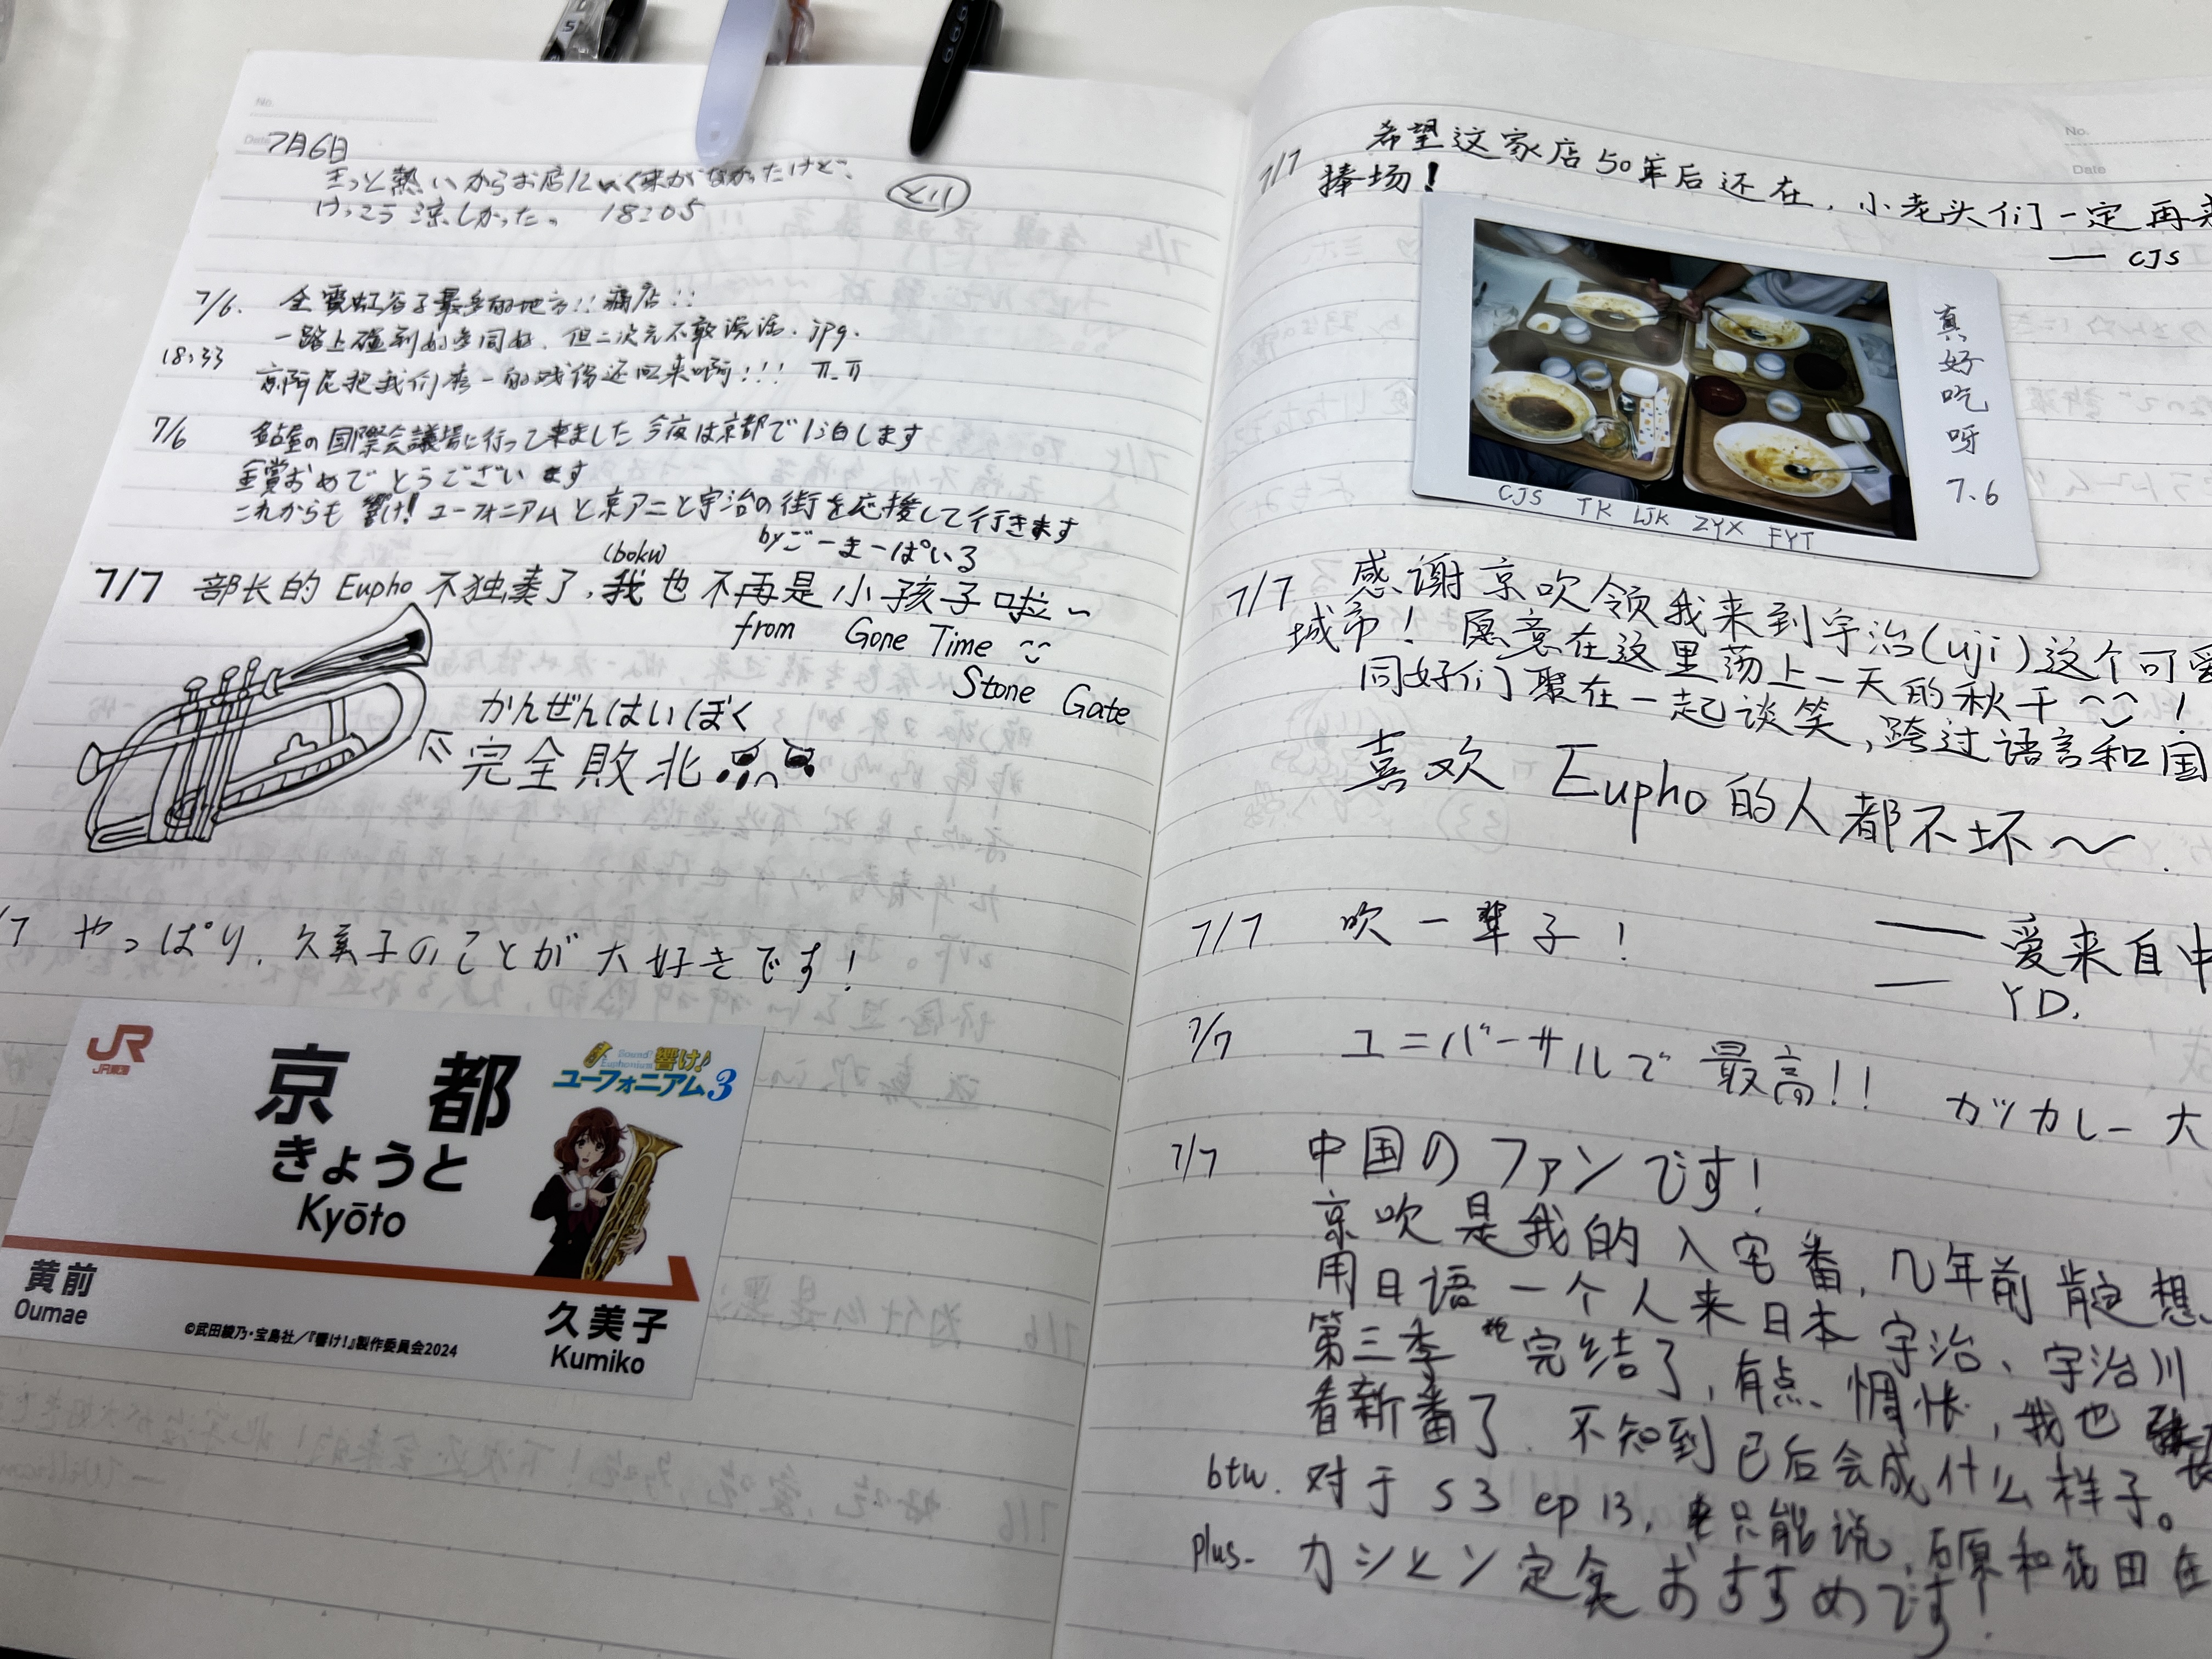 No.
Date
7月6日
きっと熱いからお店にいく来がなかったけど、
けっこう涼しかった。 18:05
7/6. 全霓虹谷子最多的地方!! 痛店!!
一路上碰到好多同好、但二次元不敢说话.jpg.
18:33 京阿尼把我们 一的 还回来啊!!! π_π
7/6 名古屋の国際会議場に行って来ました 今夜は京都で1泊します
金賞おめでとうございます
これからも 響け!ユーフォニアムと京アニと宇治の街を応援して行きます
by ごーまーぱいる
(boku)
7/7 部长的 Eupho 不独奏了,我也不再是小孩子啦~
from Gone Time
Stone Gate
かんぜんはいぼく
完全敗北
/7 やっぱり、久美子のことが大好きです!
JR
JR東海
京都
きょうと
Kyōto
Sound! Euphonium 響け!
ユーフォニアム3
黄前
Oumae
久美子
Kumiko
©武田綾乃・宝島社/『響け!』製作委員会2024
No.
Date
7/7 希望这家店50年后还在,小老头们一定再来
捧场!
— CJS
真好吃呀
7.6
CJS TK LJK ZYX FYT
7/7 感谢京吹领我来到宇治(uji)这个可爱
城市! 愿意在这里荡上一天的秋千 !
同好们聚在一起谈笑,跨过语言和国
喜欢 Eupho 的人都不坏~.
7/7 吹一辈子!
— 爱来自中
— YD.
7/7 ユニバーサルで最高!! カツカレー大
7/7 中国のファンです!
京吹是我的入宅番,几年前肯定想
用日语一个人来日本宇治、宇治川
第三季也完结了,有点惆怅,我也
看新番了. 不知到已后会成什么样子。
btw. 对于 S3 ep 13, 只能说,石原和花田在
plus- カシヒン定食おすすめです!